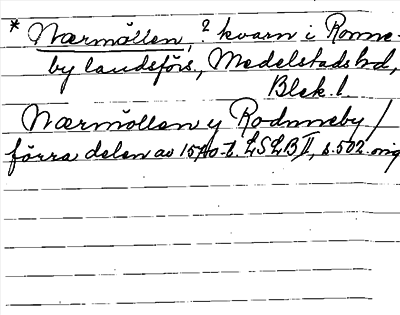 * Nærmöllen, ? kvarn i Ronne-
by landsförs., Medelstads hd,
Blek. l.
Nærmöllen y Rodnneby /
förra delen av 15 t. LSLB II, s. 502 orig